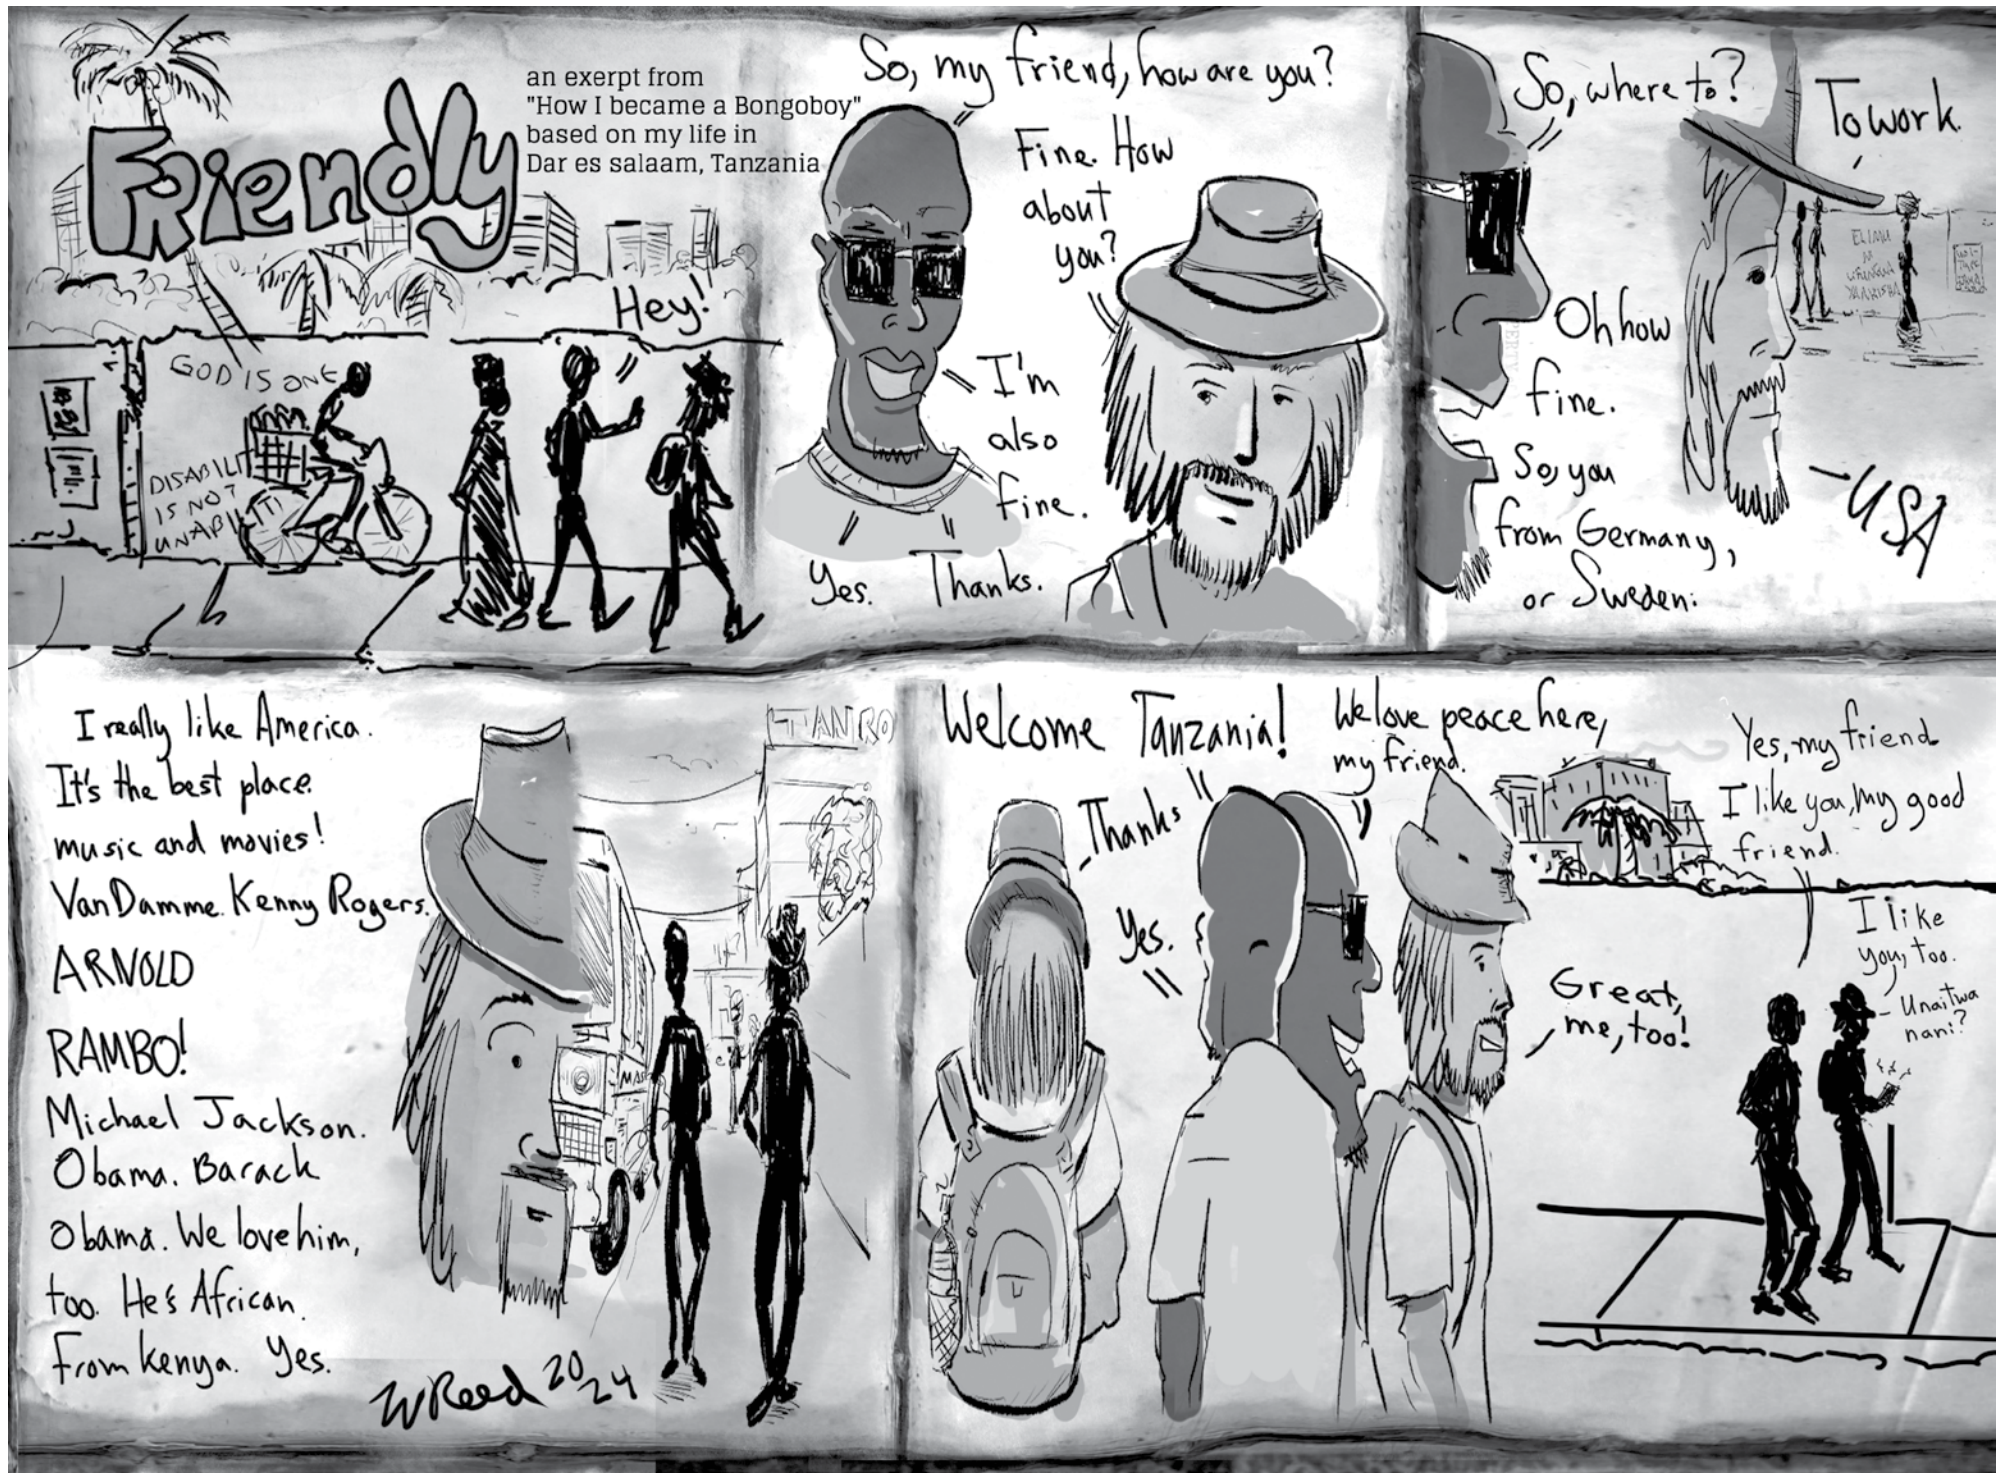 FRiendly
an exerpt from
"How I became a Bongoboy"
based on my life in
Dar es salaam, Tanzania
Hey!
GOD IS ONE
DISABILIT
IS NOT
UNABILITI
So, my friend, how are you?
Fine. How
about
you?
I'm
also
fine.
Yes. Thanks.
So, where to?
To work.
ELIMU
Oh how
fine.
So, you
from Germany,
or Sweden.
USA
I really like America.
It's the best place.
music and movies!
VanDamme. Kenny Rogers.
ARNOLD
RAMBO!
Michael Jackson.
Obama. Barack
Obama. We love him,
too. He's African.
From Kenya. Yes.
TANRO
MAS
WReed 2024
Welcome Tanzania!
Thanks
Yes.
We love peace here,
my friend.
Great,
me, too!
Yes, my friend
I like you, My good
friend.
I like
you, too.
Unaitwa
nani?